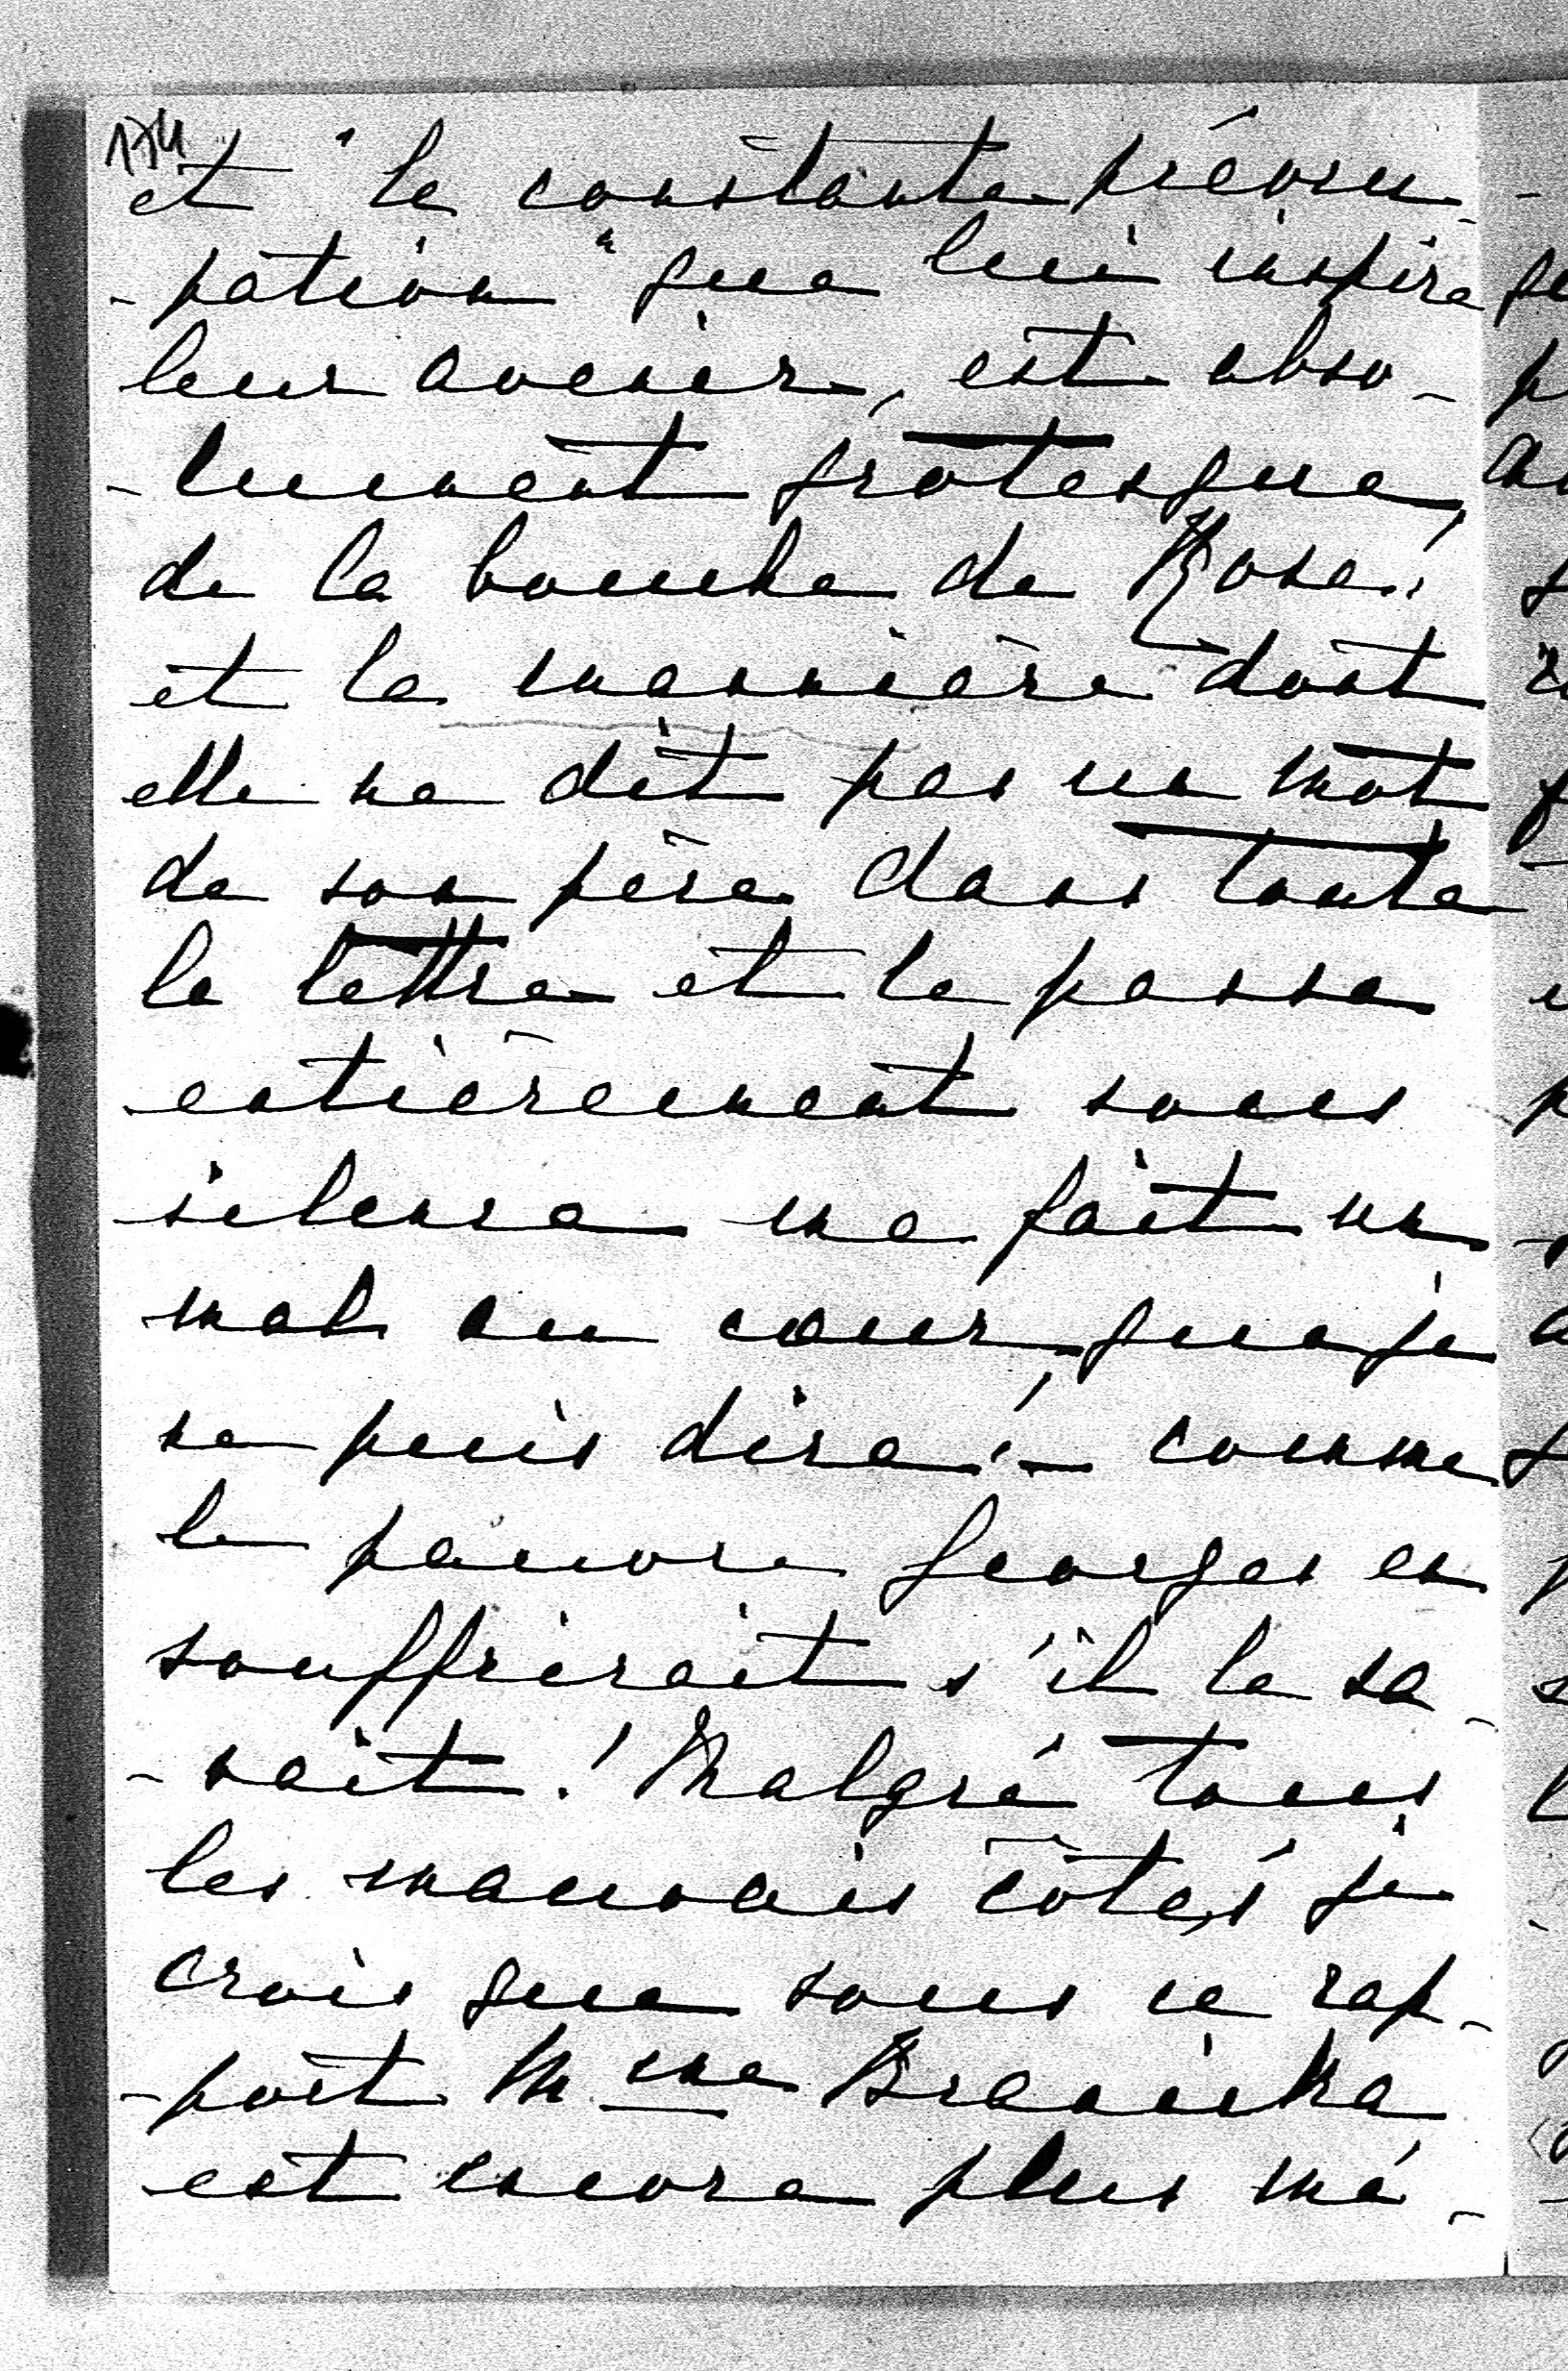 174
et "la constante préocu-
-pation" que lui inspire
leur avenir, est abso-
-lument grotesque,
de la bouche de Rosa!
et la mannière dont
elle ne dit pas un mot
de son père dans toute
la lettre et le passe
entièrement sous
silence me fait un
mal au cœur, que je
ne puis dire! - comme
le pauvre Georges en
souffrirait s'il le sa-
-vait! Malgré tous
les mauvais côtés je
crois que sous ce rap-
-port Mme Branicka
est encore plus mé-